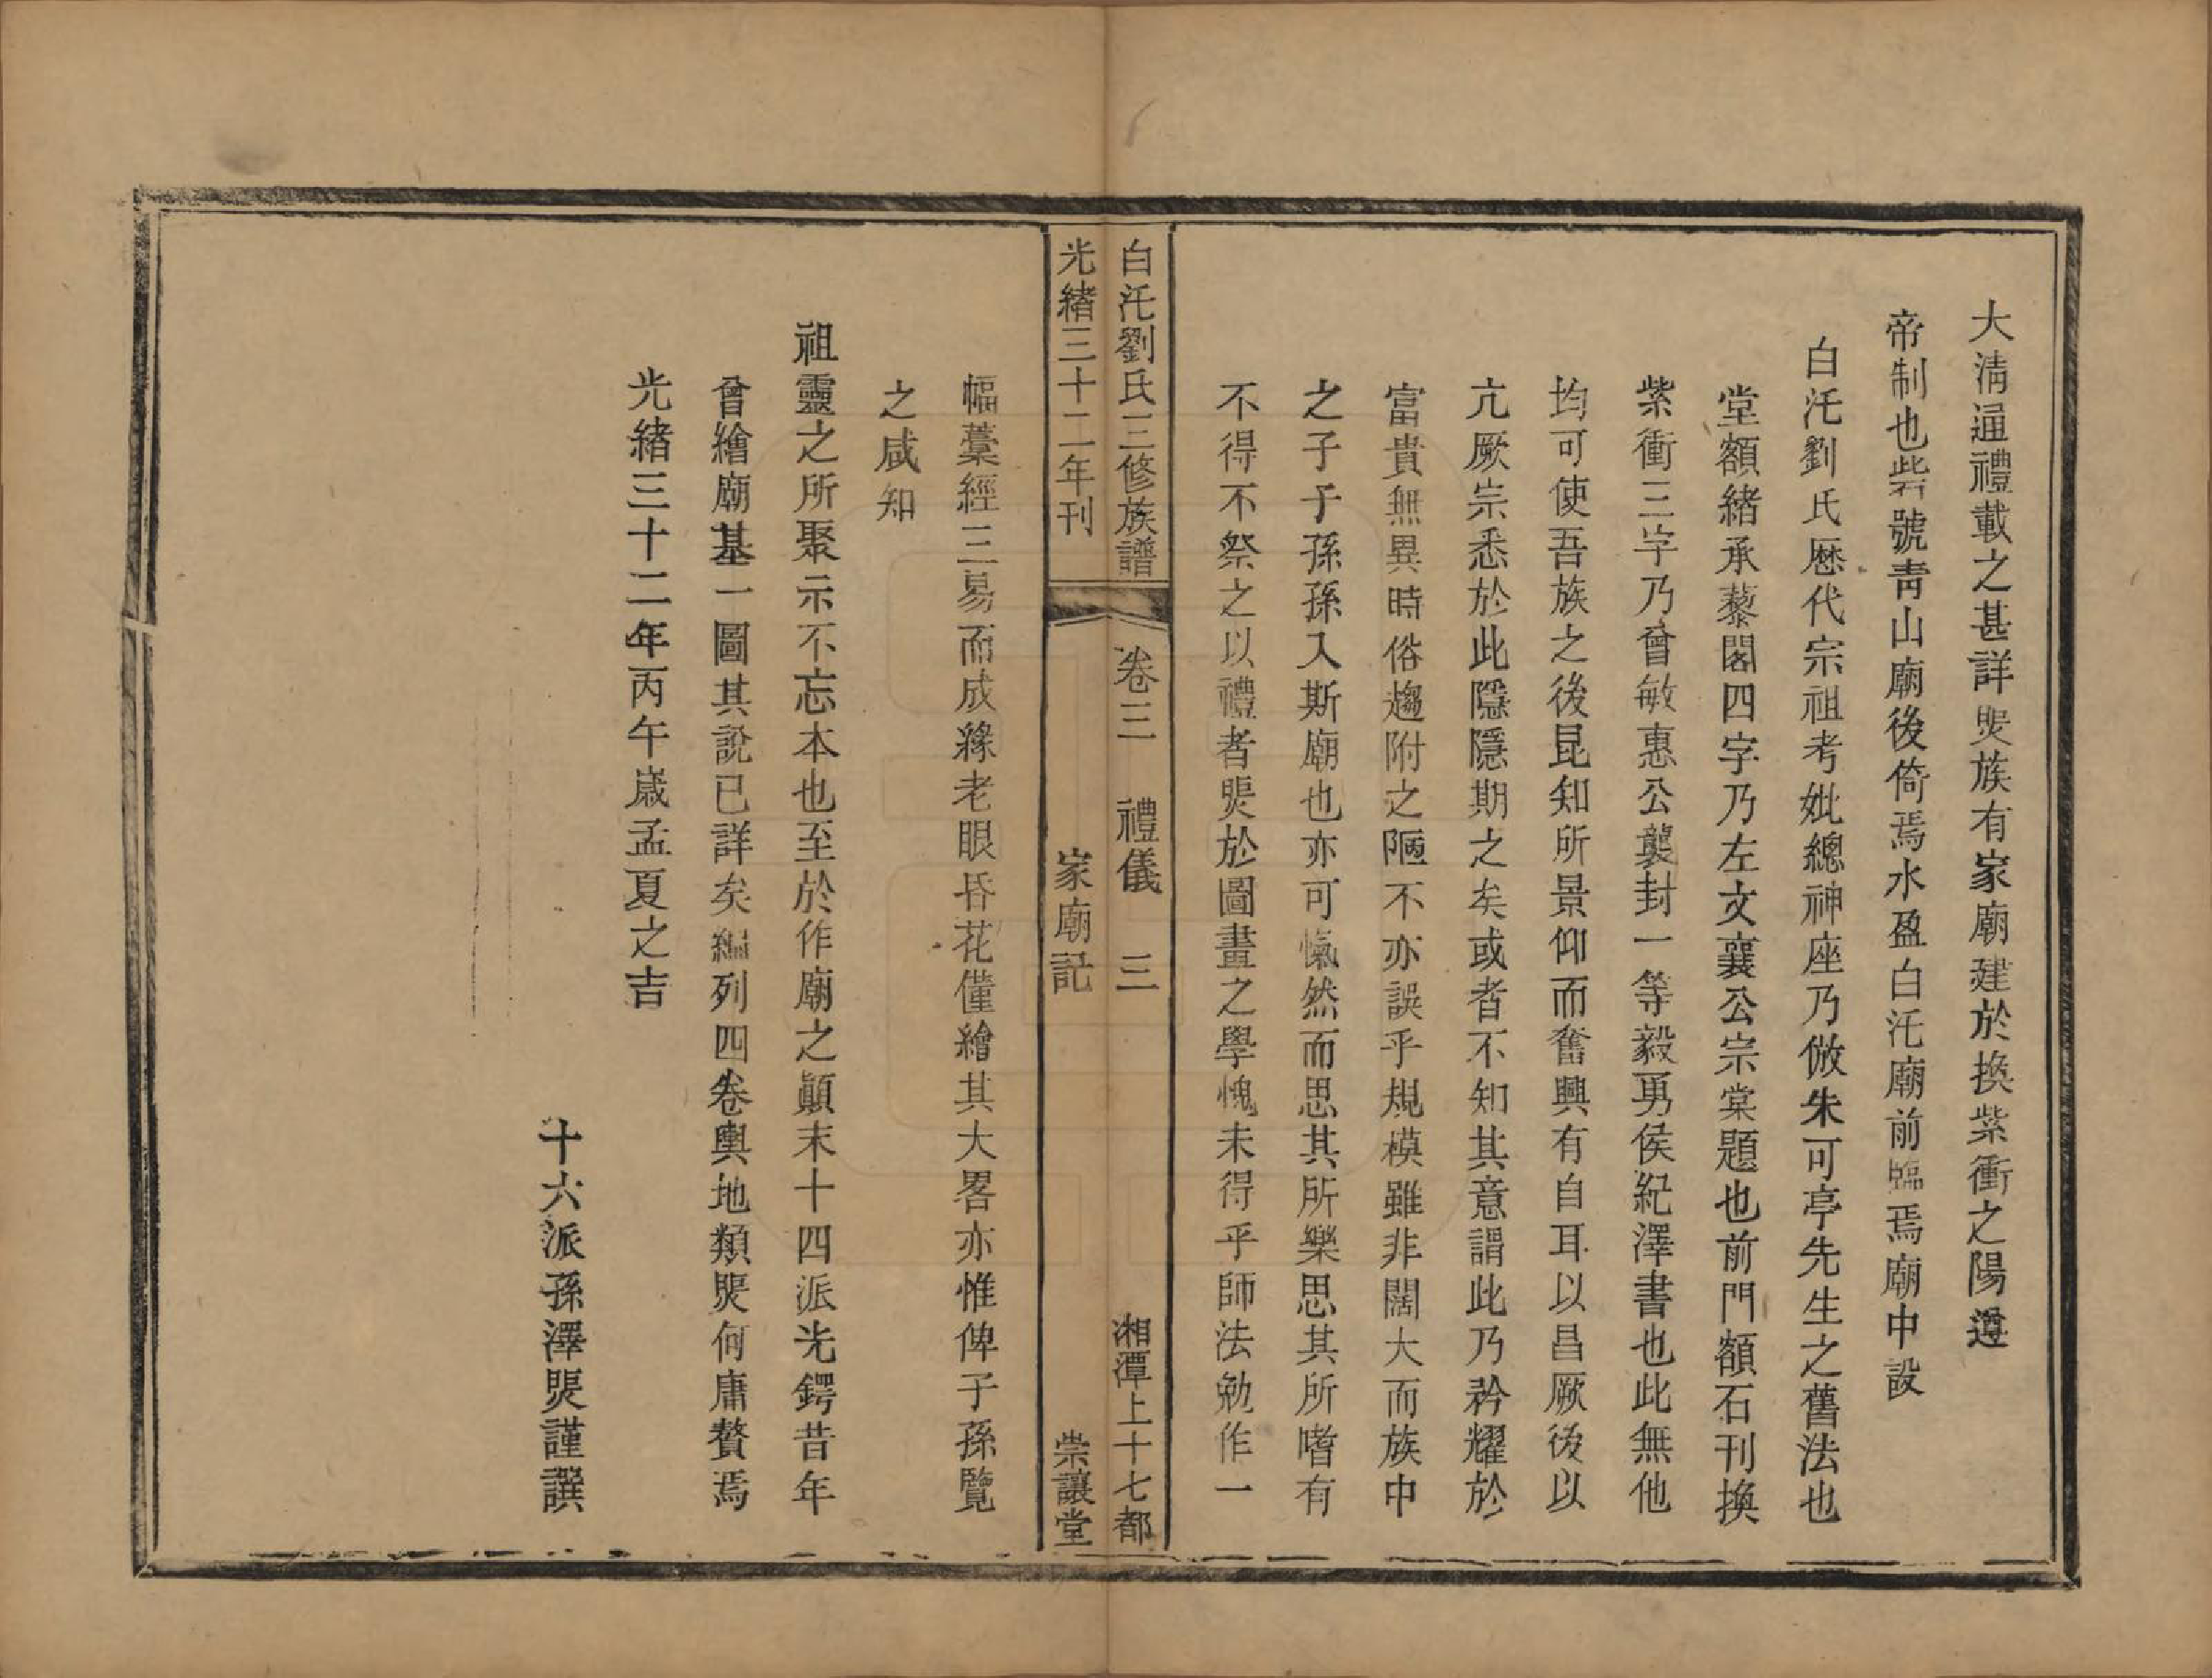 大清通禮載之甚詳煚族有家廟建於換紫衝之陽遵
帝制也砦號青山廟後倚焉水盈白汑廟前臨焉廟中設
白汑劉氏歷代宗祖考妣總神座乃倣朱可亭先生之舊法也
堂額緒承藜閣四字乃左文襄公宗棠題也前門額石刊換
紫衝三字乃曾敏惠公襲封一等毅勇侯紀澤書也此無他
均可使吾族之後昆知所景仰而奮興有自耳以昌厥後以
亢厥宗悉於此隱隱期之矣或者不知其意謂此乃矜耀於
富貴無異時俗趨附之陋不亦誤乎規模雖非闊大而族中
之子子孫孫入斯廟也亦可愾然而思其所樂思其所嗜有
不得不祭之以禮者煚於圖畫之學愧未得乎師法勉作一
白汑劉氏三修族譜 卷三 禮儀 三 湘潭上十七都
光緒三十二年刊 家廟記 崇讓堂
幅藁經三易而成緣老眼昏花僅繪其大畧亦惟俾子孫覽
之咸知
祖靈之所聚示不忘本也至於作廟之顚末十四派光鍔昔年
曾繪廟基一圖其說已詳矣編列四卷輿地類煚何庸贅焉
光緒三十二年丙午歲孟夏之吉
十六派孫澤煚謹譔